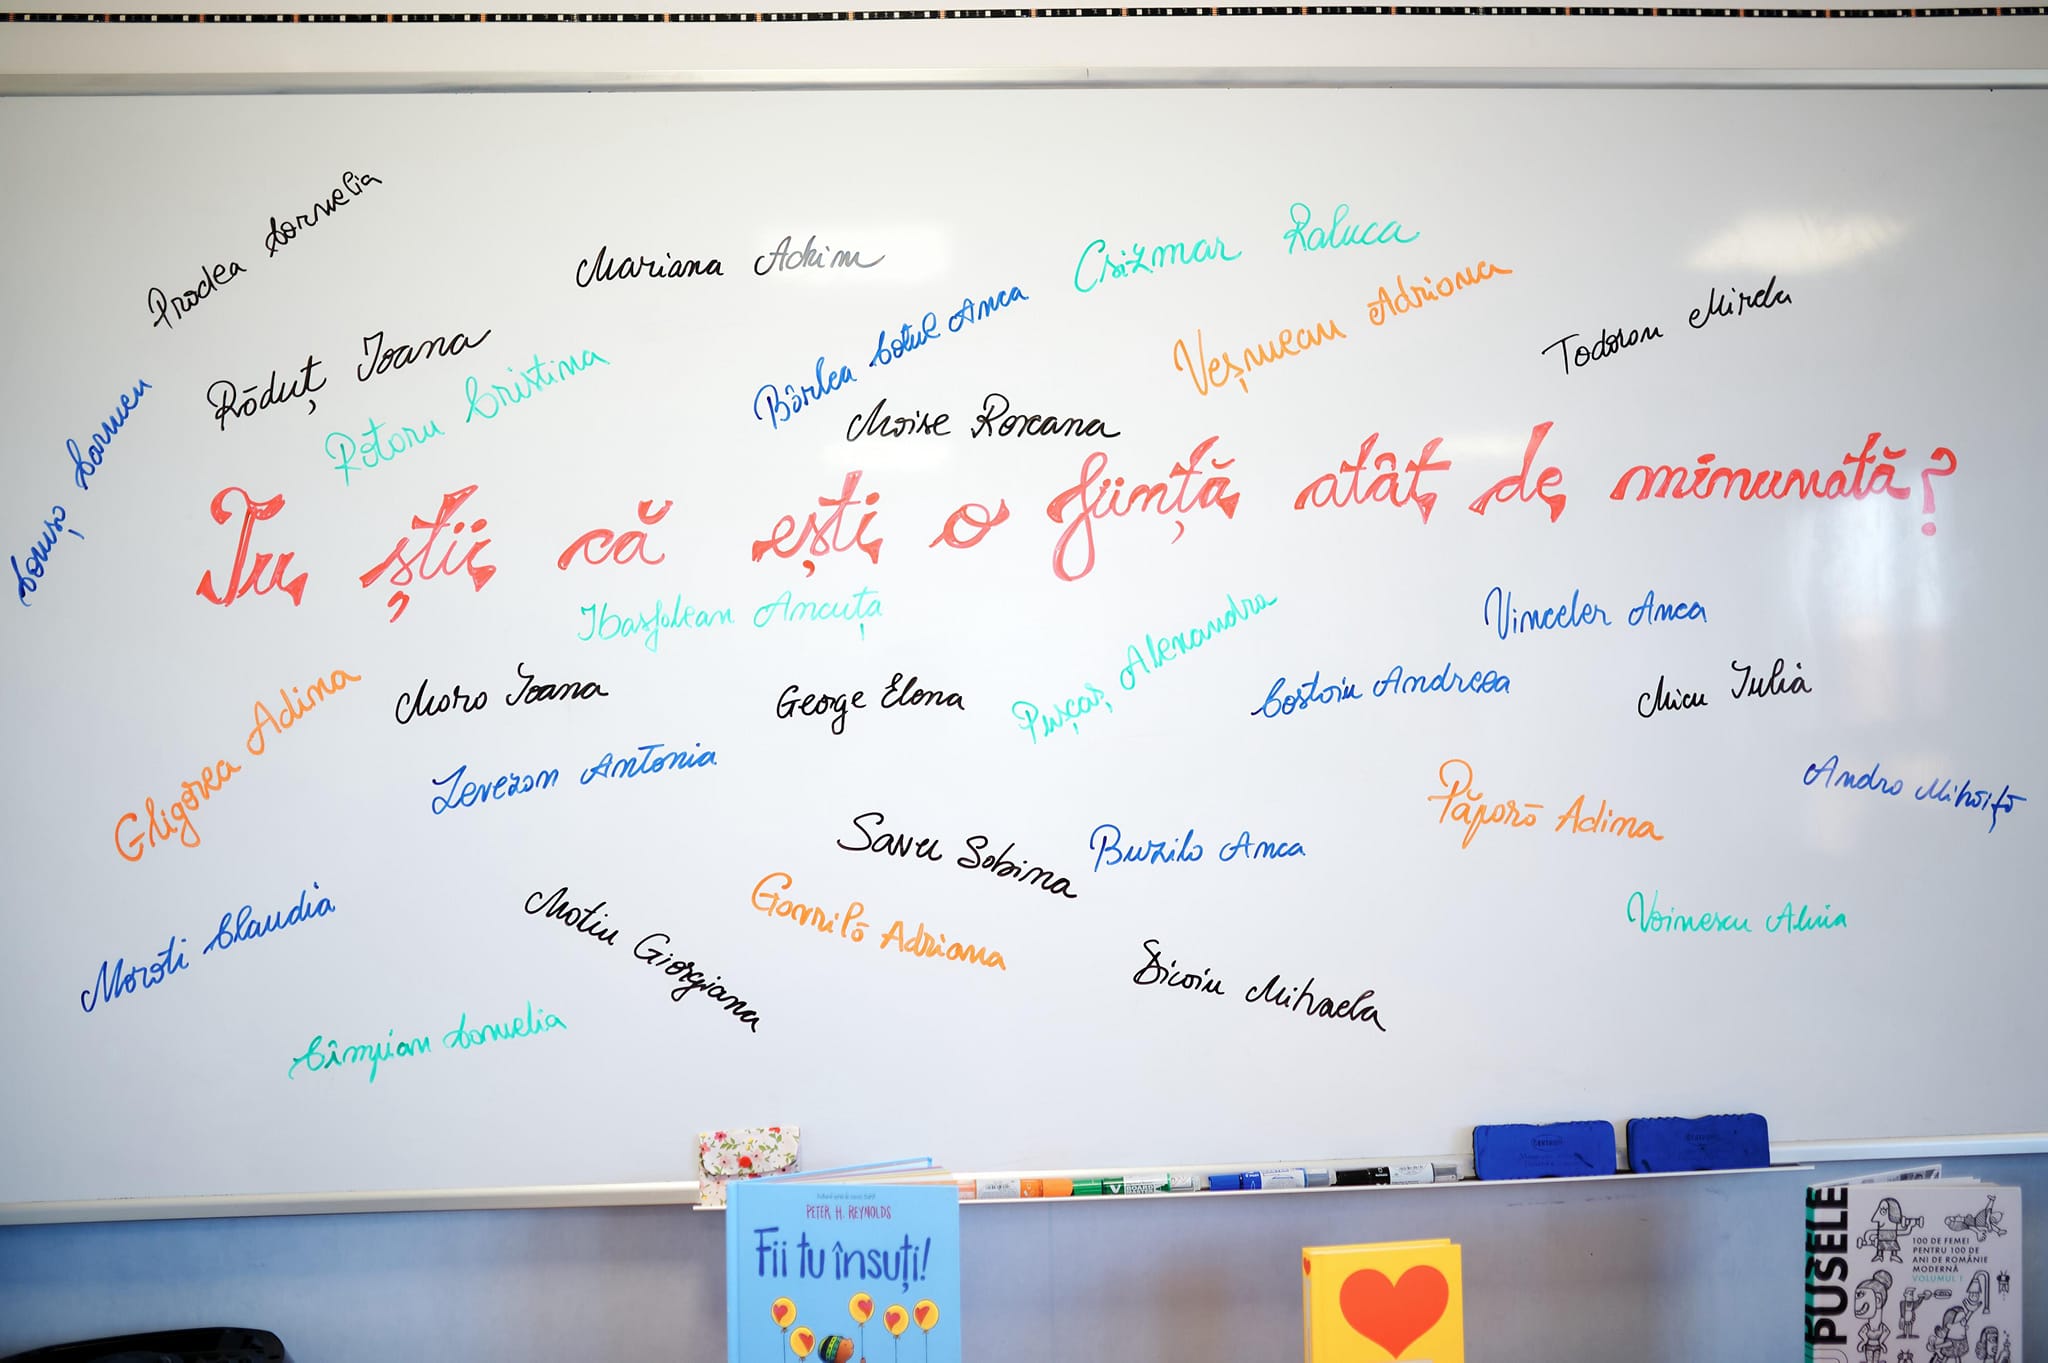 Prodea Cornelia
Mariana Achim
Csizmar Raluca
Răduț Ioana
Rotoru Cristina
Bârlea Cotul Anca
Veșnuean Adriana
Todoran Mirela
Moise Roxana
Carmen
Tu știi că ești o ființă atât de minunată?
Ancuța
Pușcaș Alexandra
Vinceler Anca
Gligorea Adina
Moro Ioana
George Elena
Costoiu Andreea
Micu Iulia
Leverzon Antonia
Andro Mihăiță
Păpară Adina
Savu Sabina
Buzilo Anca
Moroti Claudia
Motiu Giorgiana
Gavrilă Adriana
Voinescu Alina
Dicoiu Mihaela
Cîmpian Cornelia
PETER H. REYNOLDS
Fii tu însuți!
PUSELE
100 DE FEMEI
PENTRU 100 DE
ANI DE ROMÂNIE
MODERNĂ
VOLUMUL I